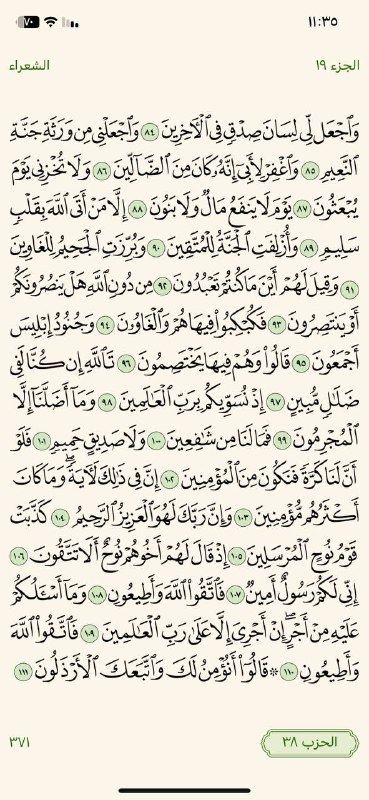 ١١:٣٥
٧٠
الجزء ١٩
الشعراء
وَٱجۡعَل لِّي لِسَانَ صِدۡقٖ فِي ٱلۡأٓخِرِينَ ٨٤ وَٱجۡعَلۡنِي مِن وَرَثَةِ جَنَّةِ
ٱلنَّعِيمِ ٨٥ وَٱغۡفِرۡ لِأَبِيٓ إِنَّهُۥ كَانَ مِنَ ٱلضَّآلِّينَ ٨٦ وَلَا تُخۡزِنِي يَوۡمَ
يُبۡعَثُونَ ٨٧ يَوۡمَ لَا يَنفَعُ مَالٞ وَلَا بَنُونَ ٨٨ إِلَّا مَنۡ أَتَى ٱللَّهَ بِقَلۡبٖ
سَلِيمٖ ٨٩ وَأُزۡلِفَتِ ٱلۡجَنَّةُ لِلۡمُتَّقِينَ ٩٠ وَبُرِّزَتِ ٱلۡجَحِيمُ لِلۡغَاوِينَ
٩١ وَقِيلَ لَهُمۡ أَيۡنَ مَا كُنتُمۡ تَعۡبُدُونَ ٩٢ مِن دُونِ ٱللَّهِ هَلۡ يَنصُرُونَكُمۡ
أَوۡ يَنتَصِرُونَ ٩٣ فَكُبۡكِبُواْ فِيهَا هُمۡ وَٱلۡغَاوُۥنَ ٩٤ وَجُنُودُ إِبۡلِيسَ
أَجۡمَعُونَ ٩٥ قَالُواْ وَهُمۡ فِيهَا يَخۡتَصِمُونَ ٩٦ تَٱللَّهِ إِن كُنَّا لَفِي
ضَلَٰلٖ مُّبِينٍ ٩٧ إِذۡ نُسَوِّيكُم بِرَبِّ ٱلۡعَٰلَمِينَ ٩٨ وَمَآ أَضَلَّنَآ إِلَّا
ٱلۡمُجۡرِمُونَ ٩٩ فَمَا لَنَا مِن شَٰفِعِينَ ١٠٠ وَلَا صَدِيقٍ حَمِيمٖ ١٠١ فَلَوۡ
أَنَّ لَنَا كَرَّةٗ فَنَكُونَ مِنَ ٱلۡمُؤۡمِنِينَ ١٠٢ إِنَّ فِي ذَٰلِكَ لَأٓيَةٗۖ وَمَا كَانَ
أَكۡثَرُهُم مُّؤۡمِنِينَ ١٠٣ وَإِنَّ رَبَّكَ لَهُوَ ٱلۡعَزِيزُ ٱلرَّحِيمُ ١٠٤ كَذَّبَتۡ
قَوۡمُ نُوحٍ ٱلۡمُرۡسَلِينَ ١٠٥ إِذۡ قَالَ لَهُمۡ أَخُوهُمۡ نُوحٌ أَلَا تَتَّقُونَ ١٠٦
إِنِّي لَكُمۡ رَسُولٌ أَمِينٞ ١٠٧ فَٱتَّقُواْ ٱللَّهَ وَأَطِيعُونِ ١٠٨ وَمَآ أَسۡـَٔلُكُمۡ
عَلَيۡهِ مِنۡ أَجۡرٍۖ إِنۡ أَجۡرِيَ إِلَّا عَلَىٰ رَبِّ ٱلۡعَٰلَمِينَ ١٠٩ فَٱتَّقُواْ ٱللَّهَ
وَأَطِيعُونِ ١١٠ ۞ قَالُوٓاْ أَنُؤۡمِنُ لَكَ وَٱتَّبَعَكَ ٱلۡأَرۡذَلُونَ ١١١
الحزب ٣٨
٣٧١